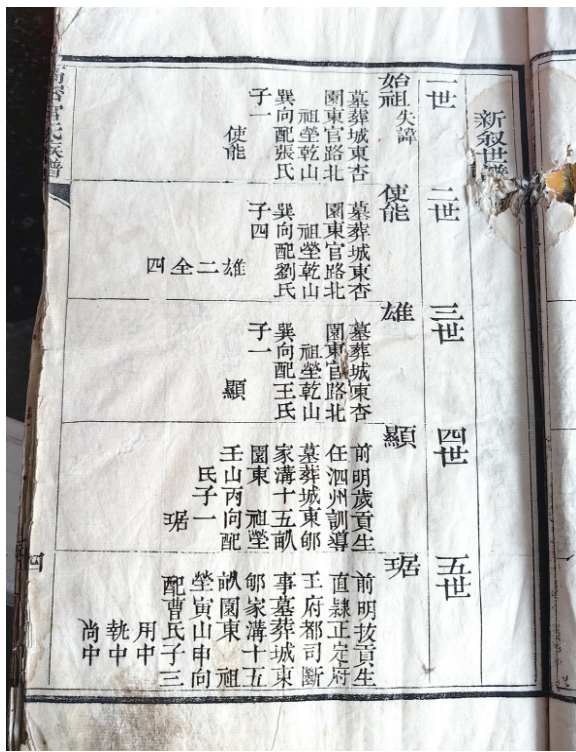 新叙世
一世
始祖失諱
墓葬城東杏
園東官路北
祖塋乾山
巽向配張氏
子一
使能
二世
使能
墓葬城東杏
園東官路北
祖塋乾山
巽向配劉氏
子四
雄
二
全
四
三世
雄
墓葬城東杏
園東官路北
祖塋乾山
巽向配王氏
子一
顯
四世
顯
前明歲貢生
任泗州訓導
墓葬城東郇
家溝十五畝
園東祖塋
壬山丙向配
氏子一
琚
五世
琚
前明拔貢生
直隸正定府
王府都司斷
事墓葬城東
郇家溝十五
畝園東祖
塋寅山申向
配曹氏子三
用中
執中
尚中
氏族譜
四